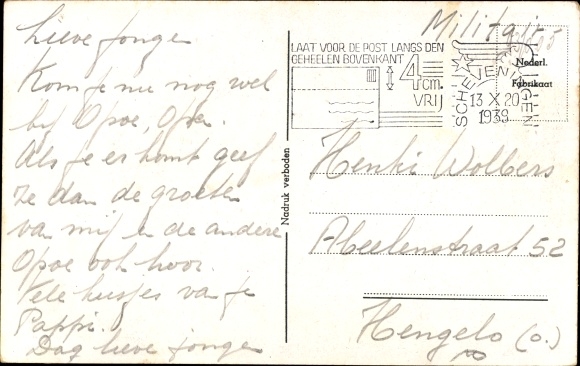 Lieve jongen
Kom je nu nog wel
bij Opoe, Opa.
Als je er komt geef
ze dan de groeten
van mij en de andere
Opoe ook hoor.
Vele kusjes van je
Pappi.
Dag lieve jongen
Nadruk verboden
Militair
LAAT VOOR DE POST LANGS DEN
GEHEELEN BOVENKANT
4 cm.
VRIJ
SCHEVENINGEN
13 X 20
1939
Nederl.
Fabrikaat
Henki Wolbers
Abeelenstraat 52
Hengelo (o.)